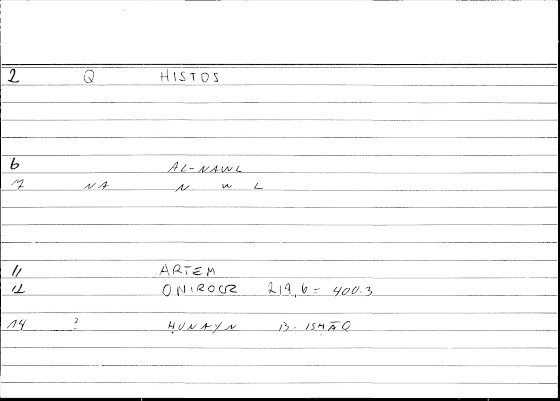 2 Q HISTOS
6 AL-NAWL
7 NA N W L
11 ARTEM
12 ONIROCR 219,6 = 400.3
14 ? ḤUNAYN B. ISḤĀQ